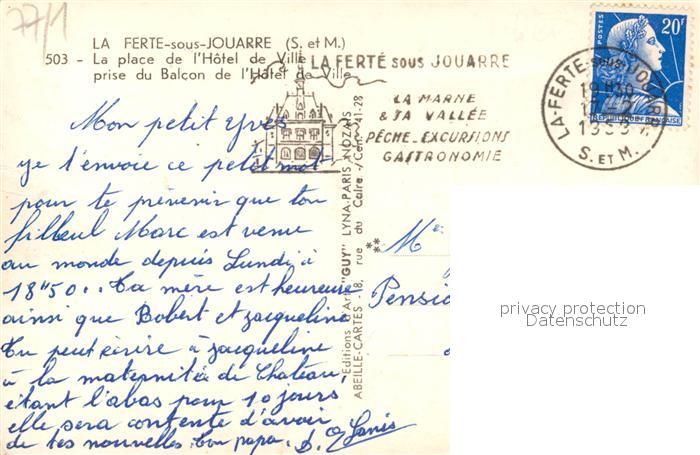 77/1
LA FERTE-sous-JOUARRE (S. et M.)
503 - La place de l'Hôtel de Ville
prise du Balcon de l'Hôtel de Ville
LA FERTÉ SOUS JOUARRE
LA MARNE
& SA VALLÉE
PÊCHE_EXCURSIONS
GASTRONOMIE
LA-FERTE-SOUS-JOUARRE
19H30
17-2
S. ET M.
POSTES
20F
REPUBLIQUE FRANÇAISE
Mon petit Yves
je t'envoie ce petit mot
pour te prévenir que ton
filleul Marc est venu
au monde depuis Lundi à
18H50. Ta mère est heureuse
ainsi que Robert et Jacqueline
Tu peut écrire à Jacqueline
à la maternité de Chateau,
étant labas pour 10 jours
elle sera contente d'avoir
de tes nouvelles. ton papa.
Editions d'Art "GUY" LYNA-PARIS NOZAIS
ABEILLE-CARTES - 18, rue du Caire - Cen. 41-28
Pensio
privacy protection
Datenschutz